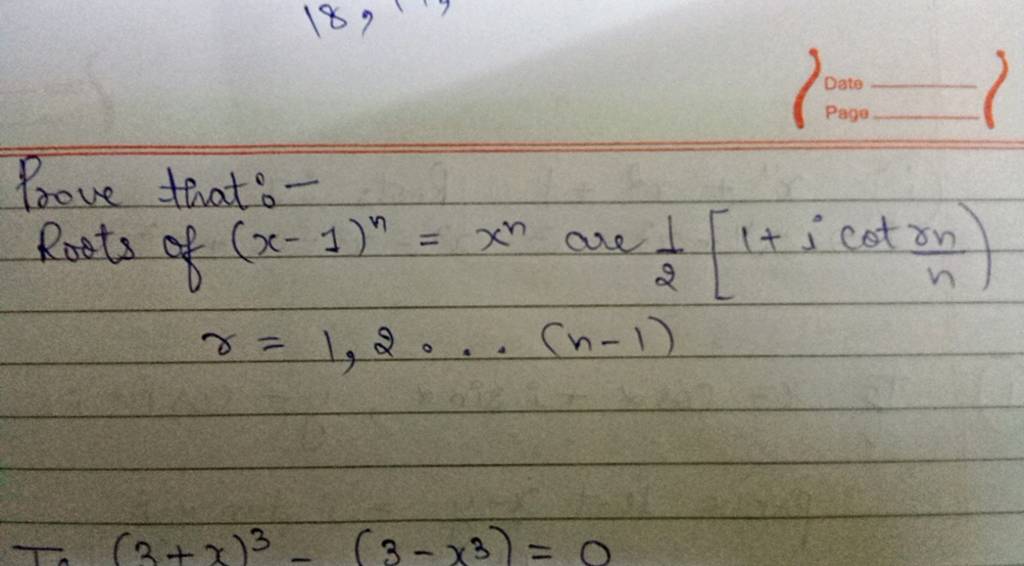 18,
Date
Page
Prove that:-
Roots of (x-1)ⁿ = xⁿ are 1/2 [1+i cot rπ/n)
r = 1, 2 . . . (n-1)
(3+x)³ - (3-x³) = 0